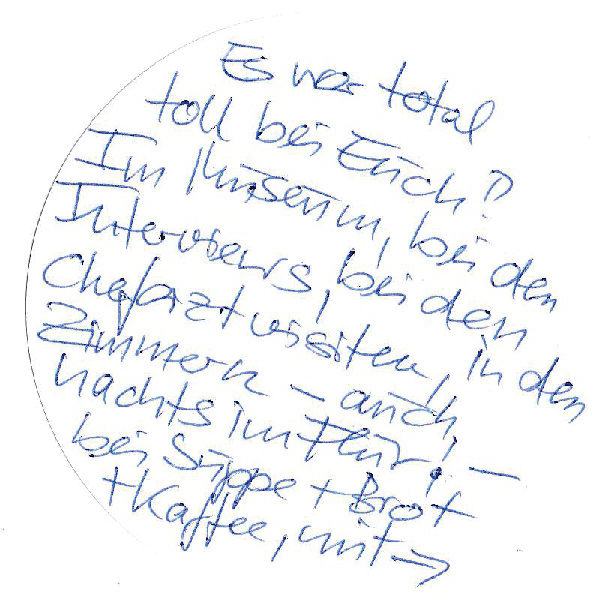 Es war total
toll bei Euch!
Im Museum, bei den
Interviews, bei den
Chefarztvisiten, in den
Zimmern – auch
nachts im Flur! –
bei Suppe + Brot
+ Kaffee, mit →